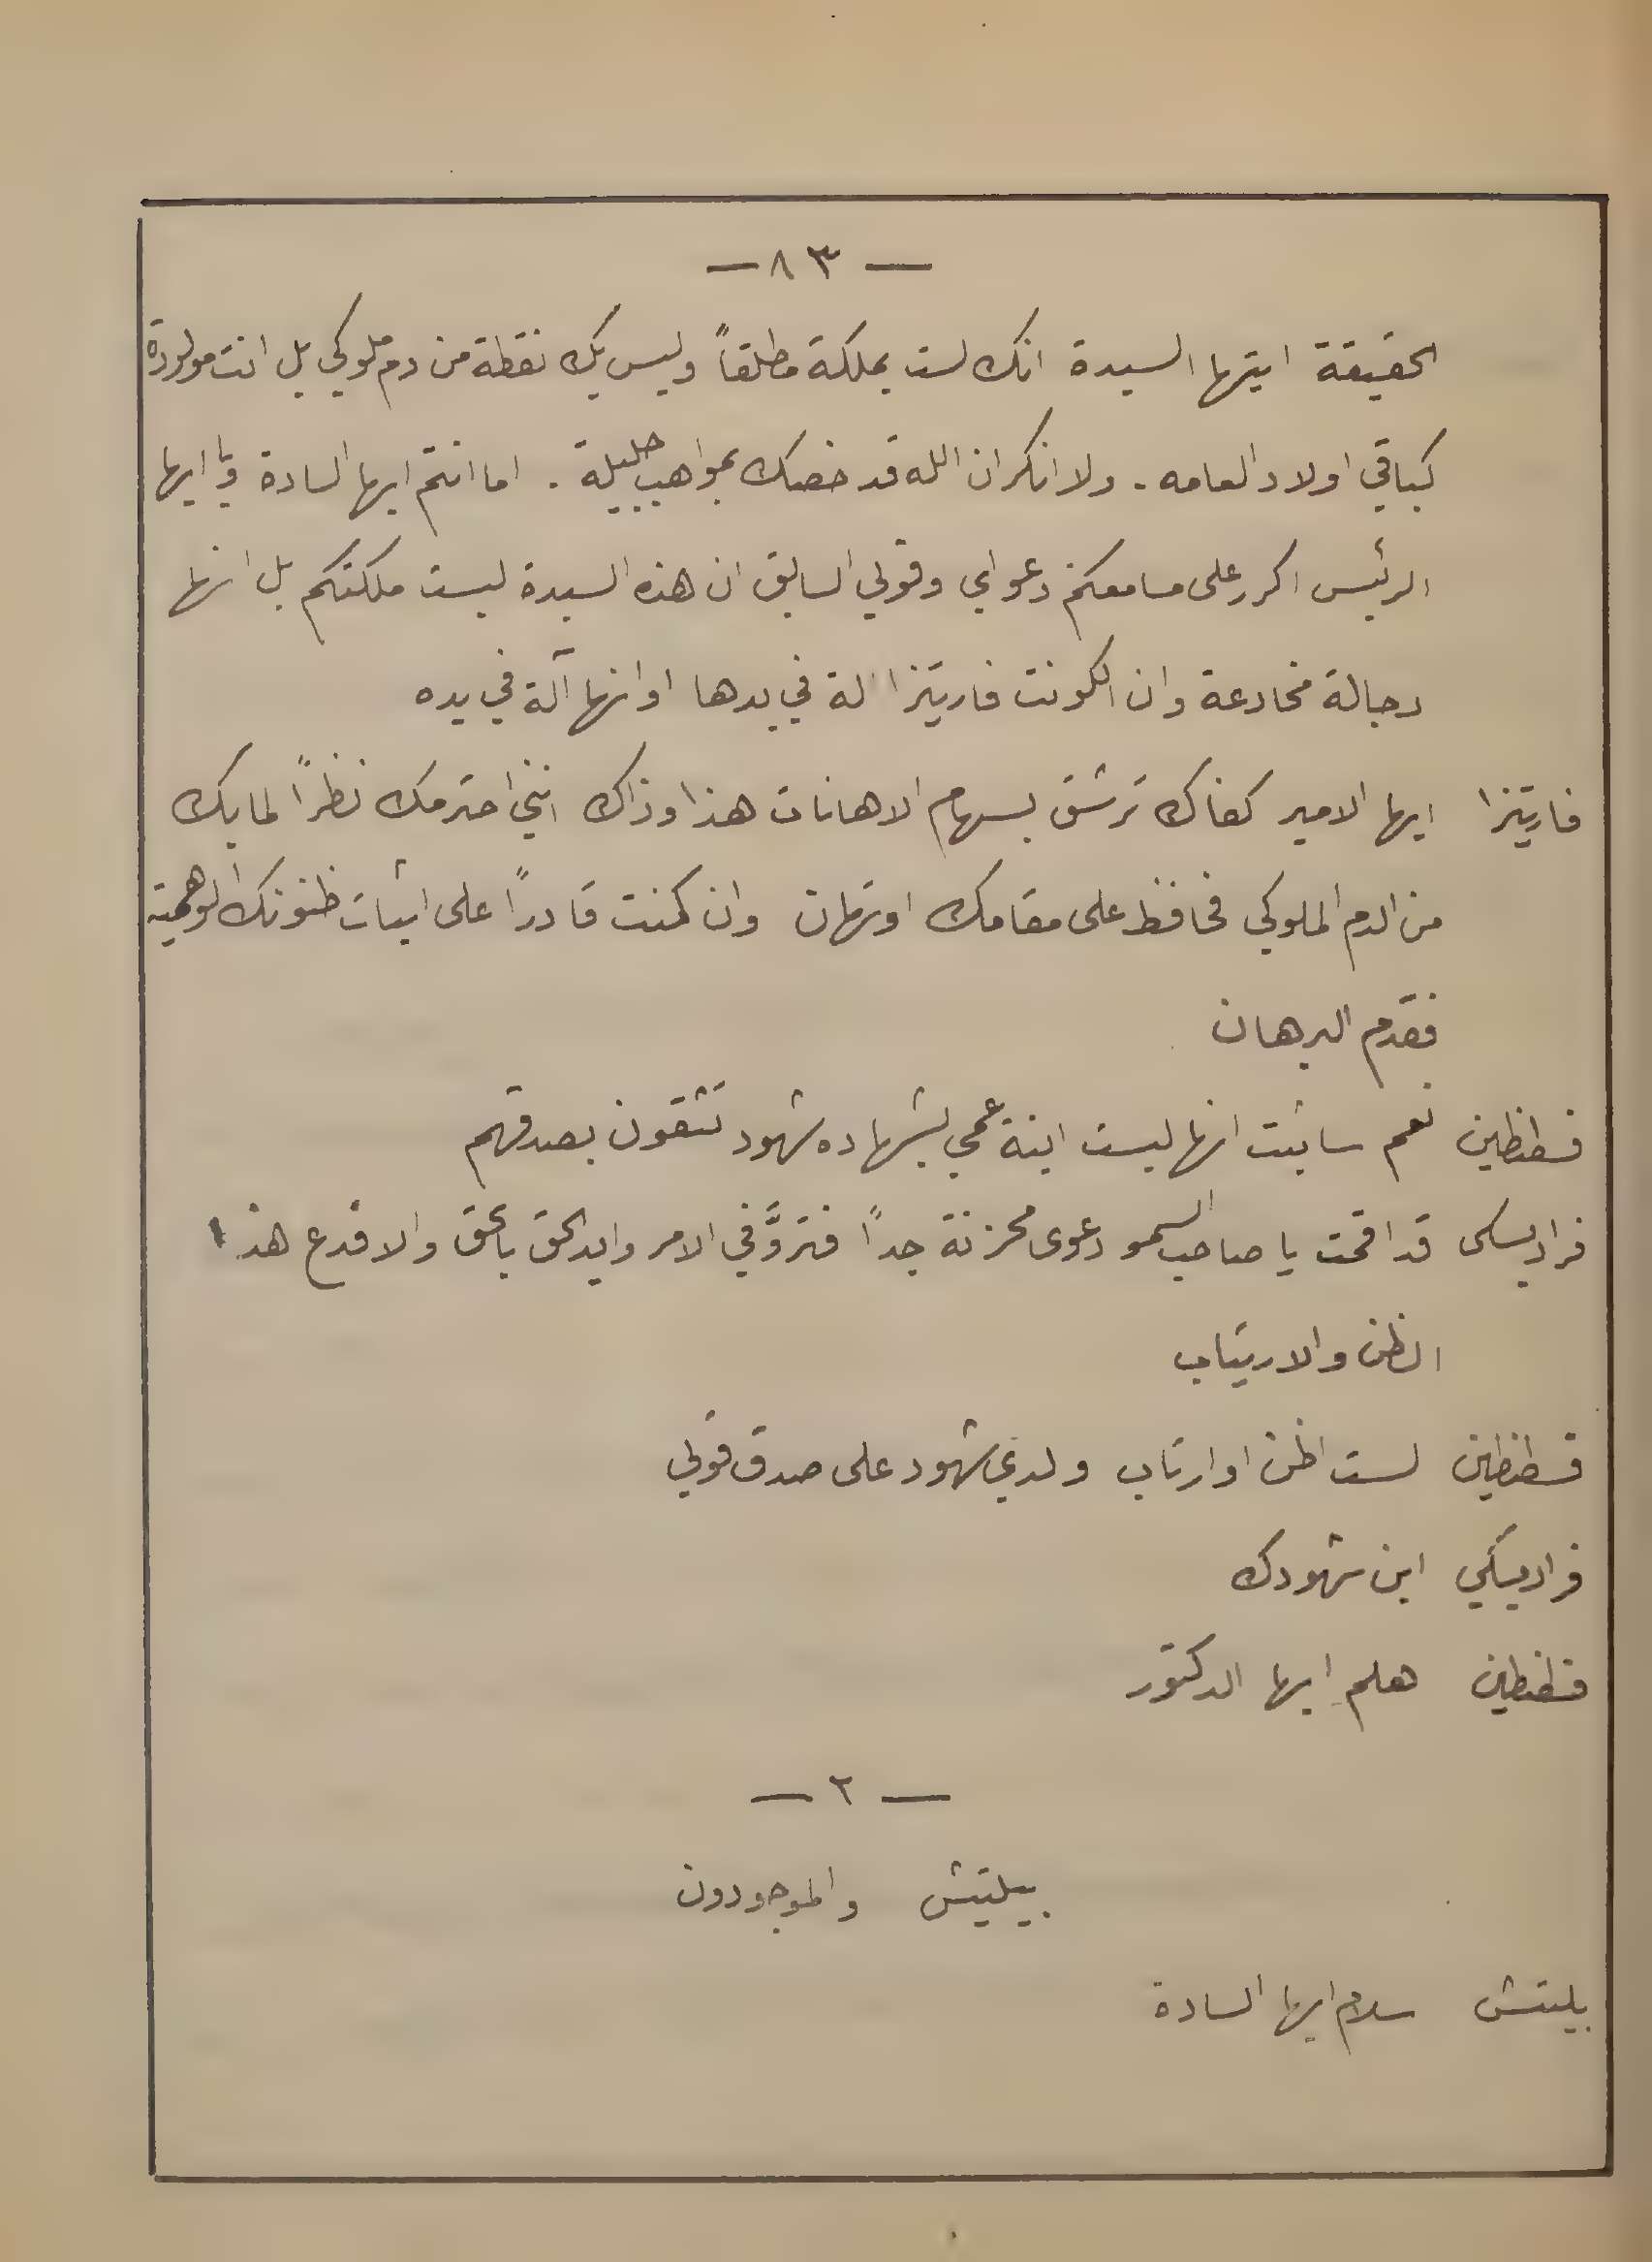 — ٨٣ —
الحقيقة ايتها السيدة انك لست بملكة مطلقاً وليس بك نقطة من دم ملوكي بل انت مولودة
كباقي اولاد العامه . ولا انكر ان الله قد خصك بمواهب جليلة . اما انتم ايها السادة ويا ايها
الرئيس اكرر على مسامعكم دعواي وقولي السابق ان هذه السيدة ليست ملكتكم بل انها
دجالة مخادعة وان الكونت فاريتزا الة في يدها او انها آلة في يده
فاريتزا ايها الامير كفاك ترشق بسهام الاهانات هذا وذاك انني احترمك نظراً لما بك
من الدم الملوكي فحافظ على مقامك او تهان وان كنت قادراً على اثبات ظنونك الوهمية
فقدم البرهان
قسطنطين نعم سأثبت انها ليست ابنة عمي بشهاده شهود تثقون بصدقهم
فراديسكى قد اقمت يا صاحب السمو دعوى محزنة جداً فتروَّ في الامر وايد الحق بالحق والا فدع هذا
الظن والارتياب
قسطنطين لست اظن او ارتاب ولدي شهود على صدق قولي
فراديسكي اين شهودك
قسطنطين هلم ايها الدكتور
— ٢ —
بيليتش والموجودون
بليتش سلام ايها السادة